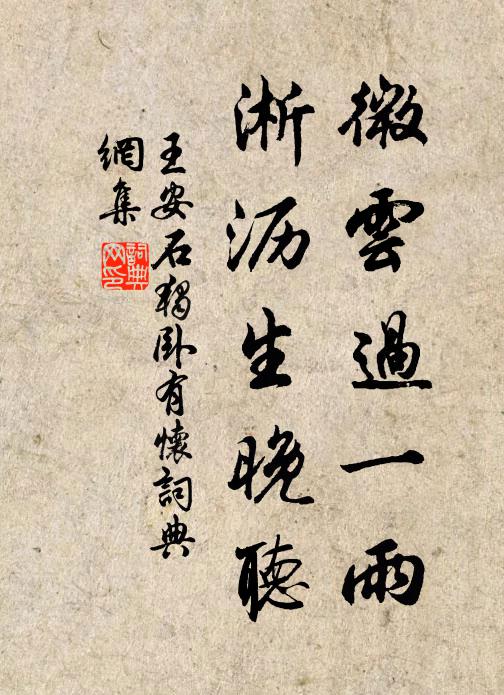 微雲過一雨
淅沥生晚聽
王安石獨卧有懷詞典
網集
詞典
网印